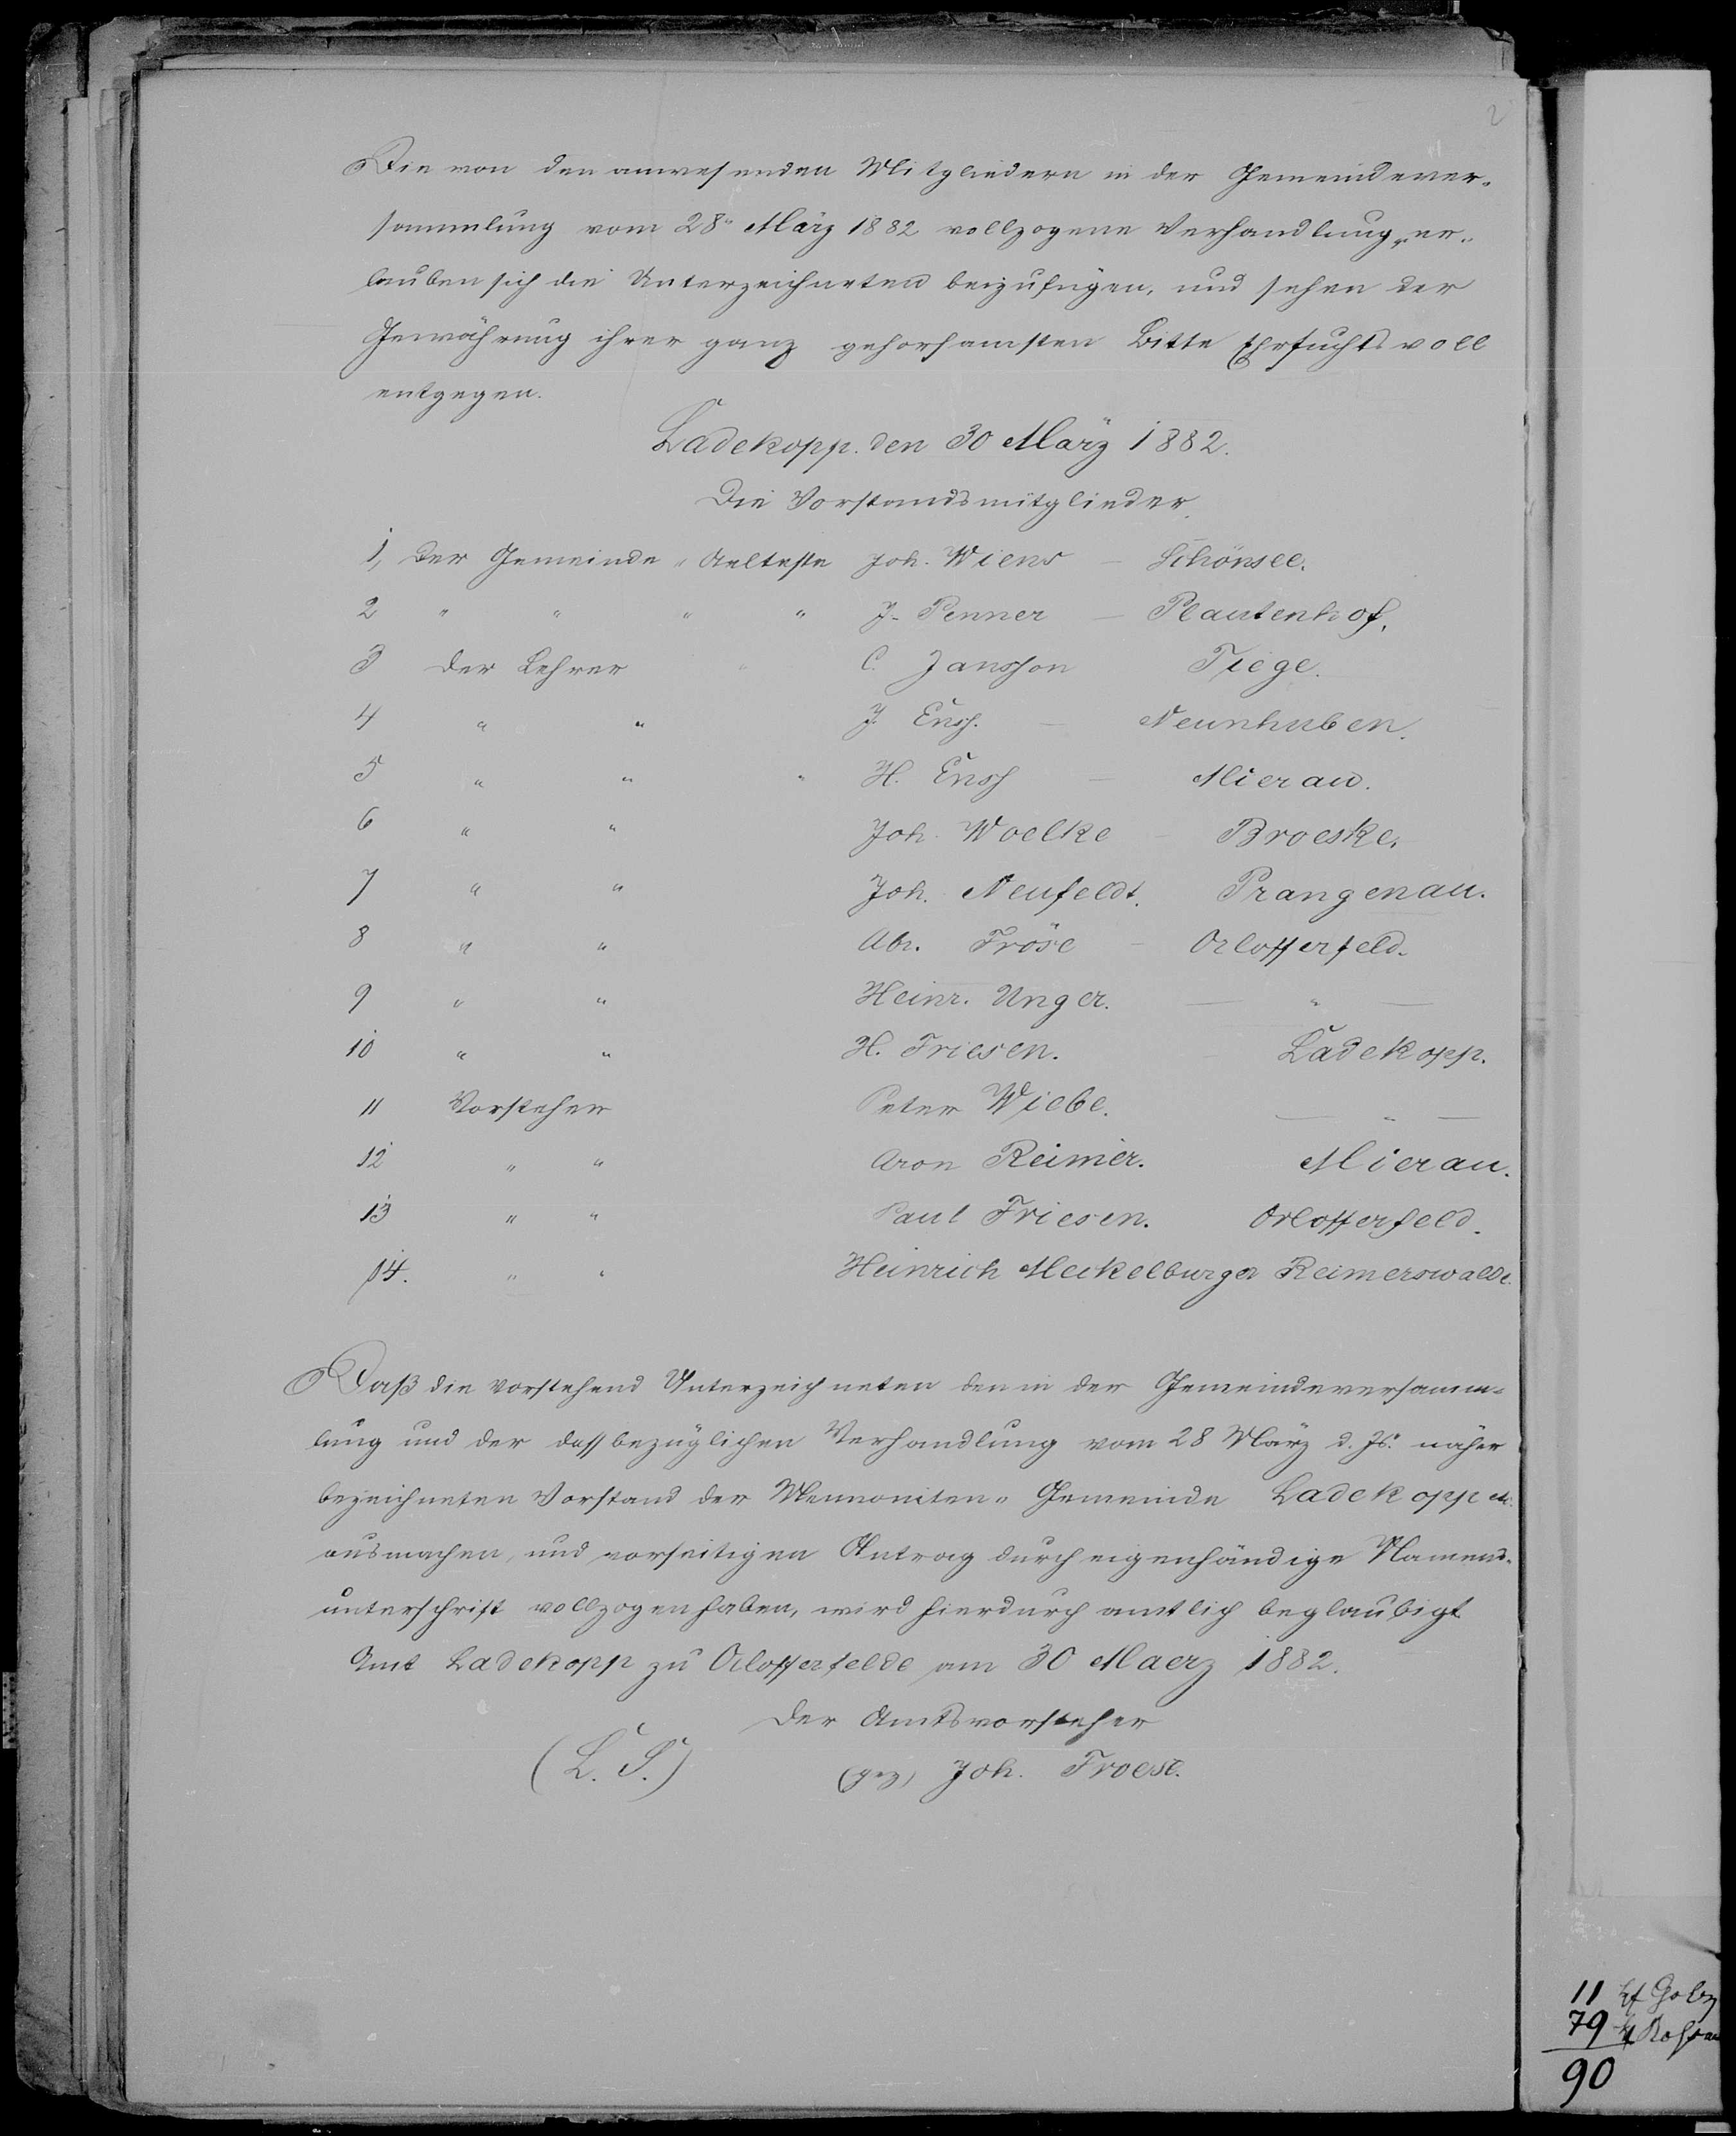 2
Die von den anwesenden Mitgliedern in der Gemeindever-
sammlung vom 28ⁿ März 1882 vollzogene Verhandlung, er-
lauben sich die Unterzeichneten beizufügen, und sehen der
Gewährung ihrer ganz gehorsamsten Bitte Ehrfuchtsvoll
entgegen.
Ladekopp. den 30 März 1882.
Die Vorstandsmitglieder.
1, Der Gemeinde - Aelteste Joh. Wiens – Schönsee.
2 " " " " J. Penner – Plautenhof.
3 Der Lehrer " C. Jansson Tiege.
4 " " J. Enss. – Neunhuben.
5 " " " H. Enss – Mierau.
6 " " Joh. Woelke – Broeske.
7 " " Joh. Neufeldt. Prangenau.
8 " " Abr. Fröse – Orlofferfeld.
9 " " Heinr. Unger. – " –
10 " " H. Friesen. Ladekopp.
11 Vorsteher Peter Wiebe. – " –
12 " " Aron Reimer. Mierau.
13 " " Paul Friesen. Orlofferfeld.
14. " " Heinrich Mekelburger Reimerswalde.
Daß die vorstehend Unterzeichneten den in der Gemeindeversamm-
lung und der dessbezüglichen Verhandlung vom 28 März d. Js. näher
bezeichneten Vorstand der Mennoniten-Gemeinde Ladekopp etc.
ausmachen, und vorseitigen Antrag durch eigenhändige Namens-
unterschrift vollzogen haben, wird hierdurch amtlich beglaubigt
Amt Ladekopp zu Orlofferfelde am 30 Maerz 1882.
Der Amtsvorsteher
(L. S.) (gez) Joh. Froese.
11
79
90